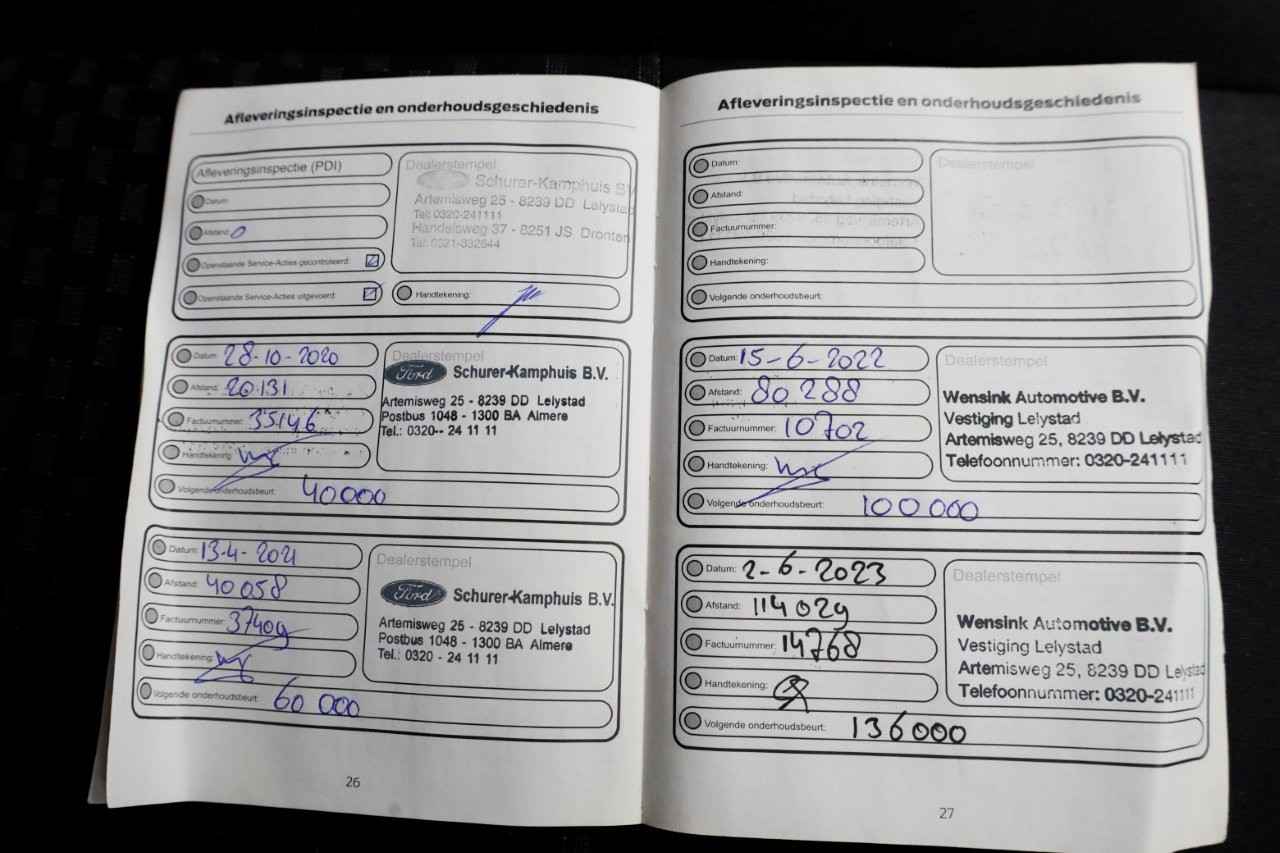 Afleveringsinspectie en onderhoudsgeschiedenis
Afleveringsinspectie (PDI)
Datum:
Afstand: 0
Openstaande Service-Acties gecontroleerd:
Openstaande Service-Acties uitgevoerd:
Dealerstempel
Schurer-Kamphuis B.V.
Artemisweg 25 - 8239 DD Lelystad
Tel: 0320-241111
Handelsweg 37 - 8251 JS Dronten
Tel: 0321-332644
Handtekening:
Datum: 28-10-2020
Afstand: 20131
Factuurnummer: 35146
Handtekening:
Volgende onderhoudsbeurt: 40000
Dealerstempel
Ford Schurer-Kamphuis B.V.
Artemisweg 25 - 8239 DD Lelystad
Postbus 1048 - 1300 BA Almere
Tel.: 0320-- 24 11 11
Datum: 13-4-2021
Afstand: 40058
Factuurnummer: 37409
Handtekening:
Volgende onderhoudsbeurt: 60 000
Dealerstempel
Ford Schurer-Kamphuis B.V.
Artemisweg 25 - 8239 DD Lelystad
Postbus 1048 - 1300 BA Almere
Tel.: 0320 - 24 11 11
26
Afleveringsinspectie en onderhoudsgeschiedenis
Datum:
Afstand:
Factuurnummer:
Handtekening:
Volgende onderhoudsbeurt:
Dealerstempel
Datum: 15-6-2022
Afstand: 80288
Factuurnummer: 10702
Handtekening:
Volgende onderhoudsbeurt: 100 000
Dealerstempel
Wensink Automotive B.V.
Vestiging Lelystad
Artemisweg 25, 8239 DD Lelystad
Telefoonnummer: 0320-241111
Datum: 2-6-2023
Afstand: 114029
Factuurnummer: 14768
Handtekening:
Volgende onderhoudsbeurt: 136000
Dealerstempel
Wensink Automotive B.V.
Vestiging Lelystad
Artemisweg 25, 8239 DD Lelystad
Telefoonnummer: 0320-241111
27